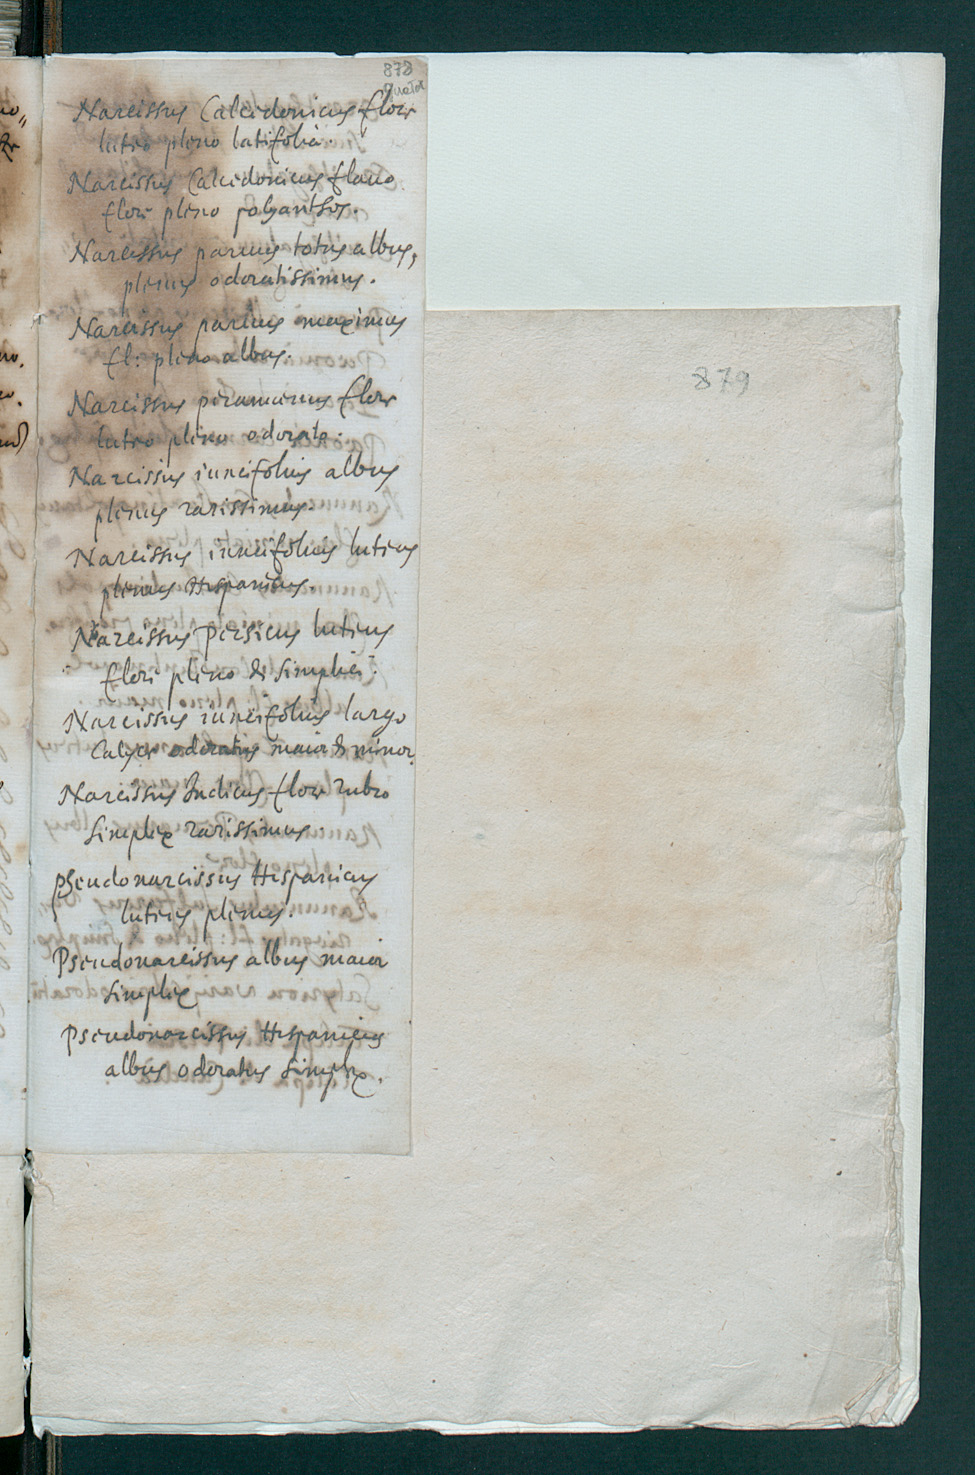 878
Narcissus Calcedonicus flore
luteo pleno latifolia.
Narcissus Calcedonicus flavo
flore pleno polyanthos.
Narcissus parvus totus albus,
plenus odoratissimus.
Narcissus parvus maximus
fl: pleno albus.
Narcissus flore
luteo pleno odorato.
Narcissus iuncifolius albus
plenus rarissimus.
Narcissus iuncifolius luteus
plenus Hispanicus.
Narcissus Persicus luteus
flore pleno & simplici.
Narcissus iuncifolius largo
Calyce odoratus maior & minor.
Narcissus Indicus flore rubro
simplex rarissimus
Pseudonarcissus Hispanicus
luteus plenus.
Pseudonarcissus albus maior
simplex
Pseudonarcissus Hispanicus
albus odoratus simplex.
879